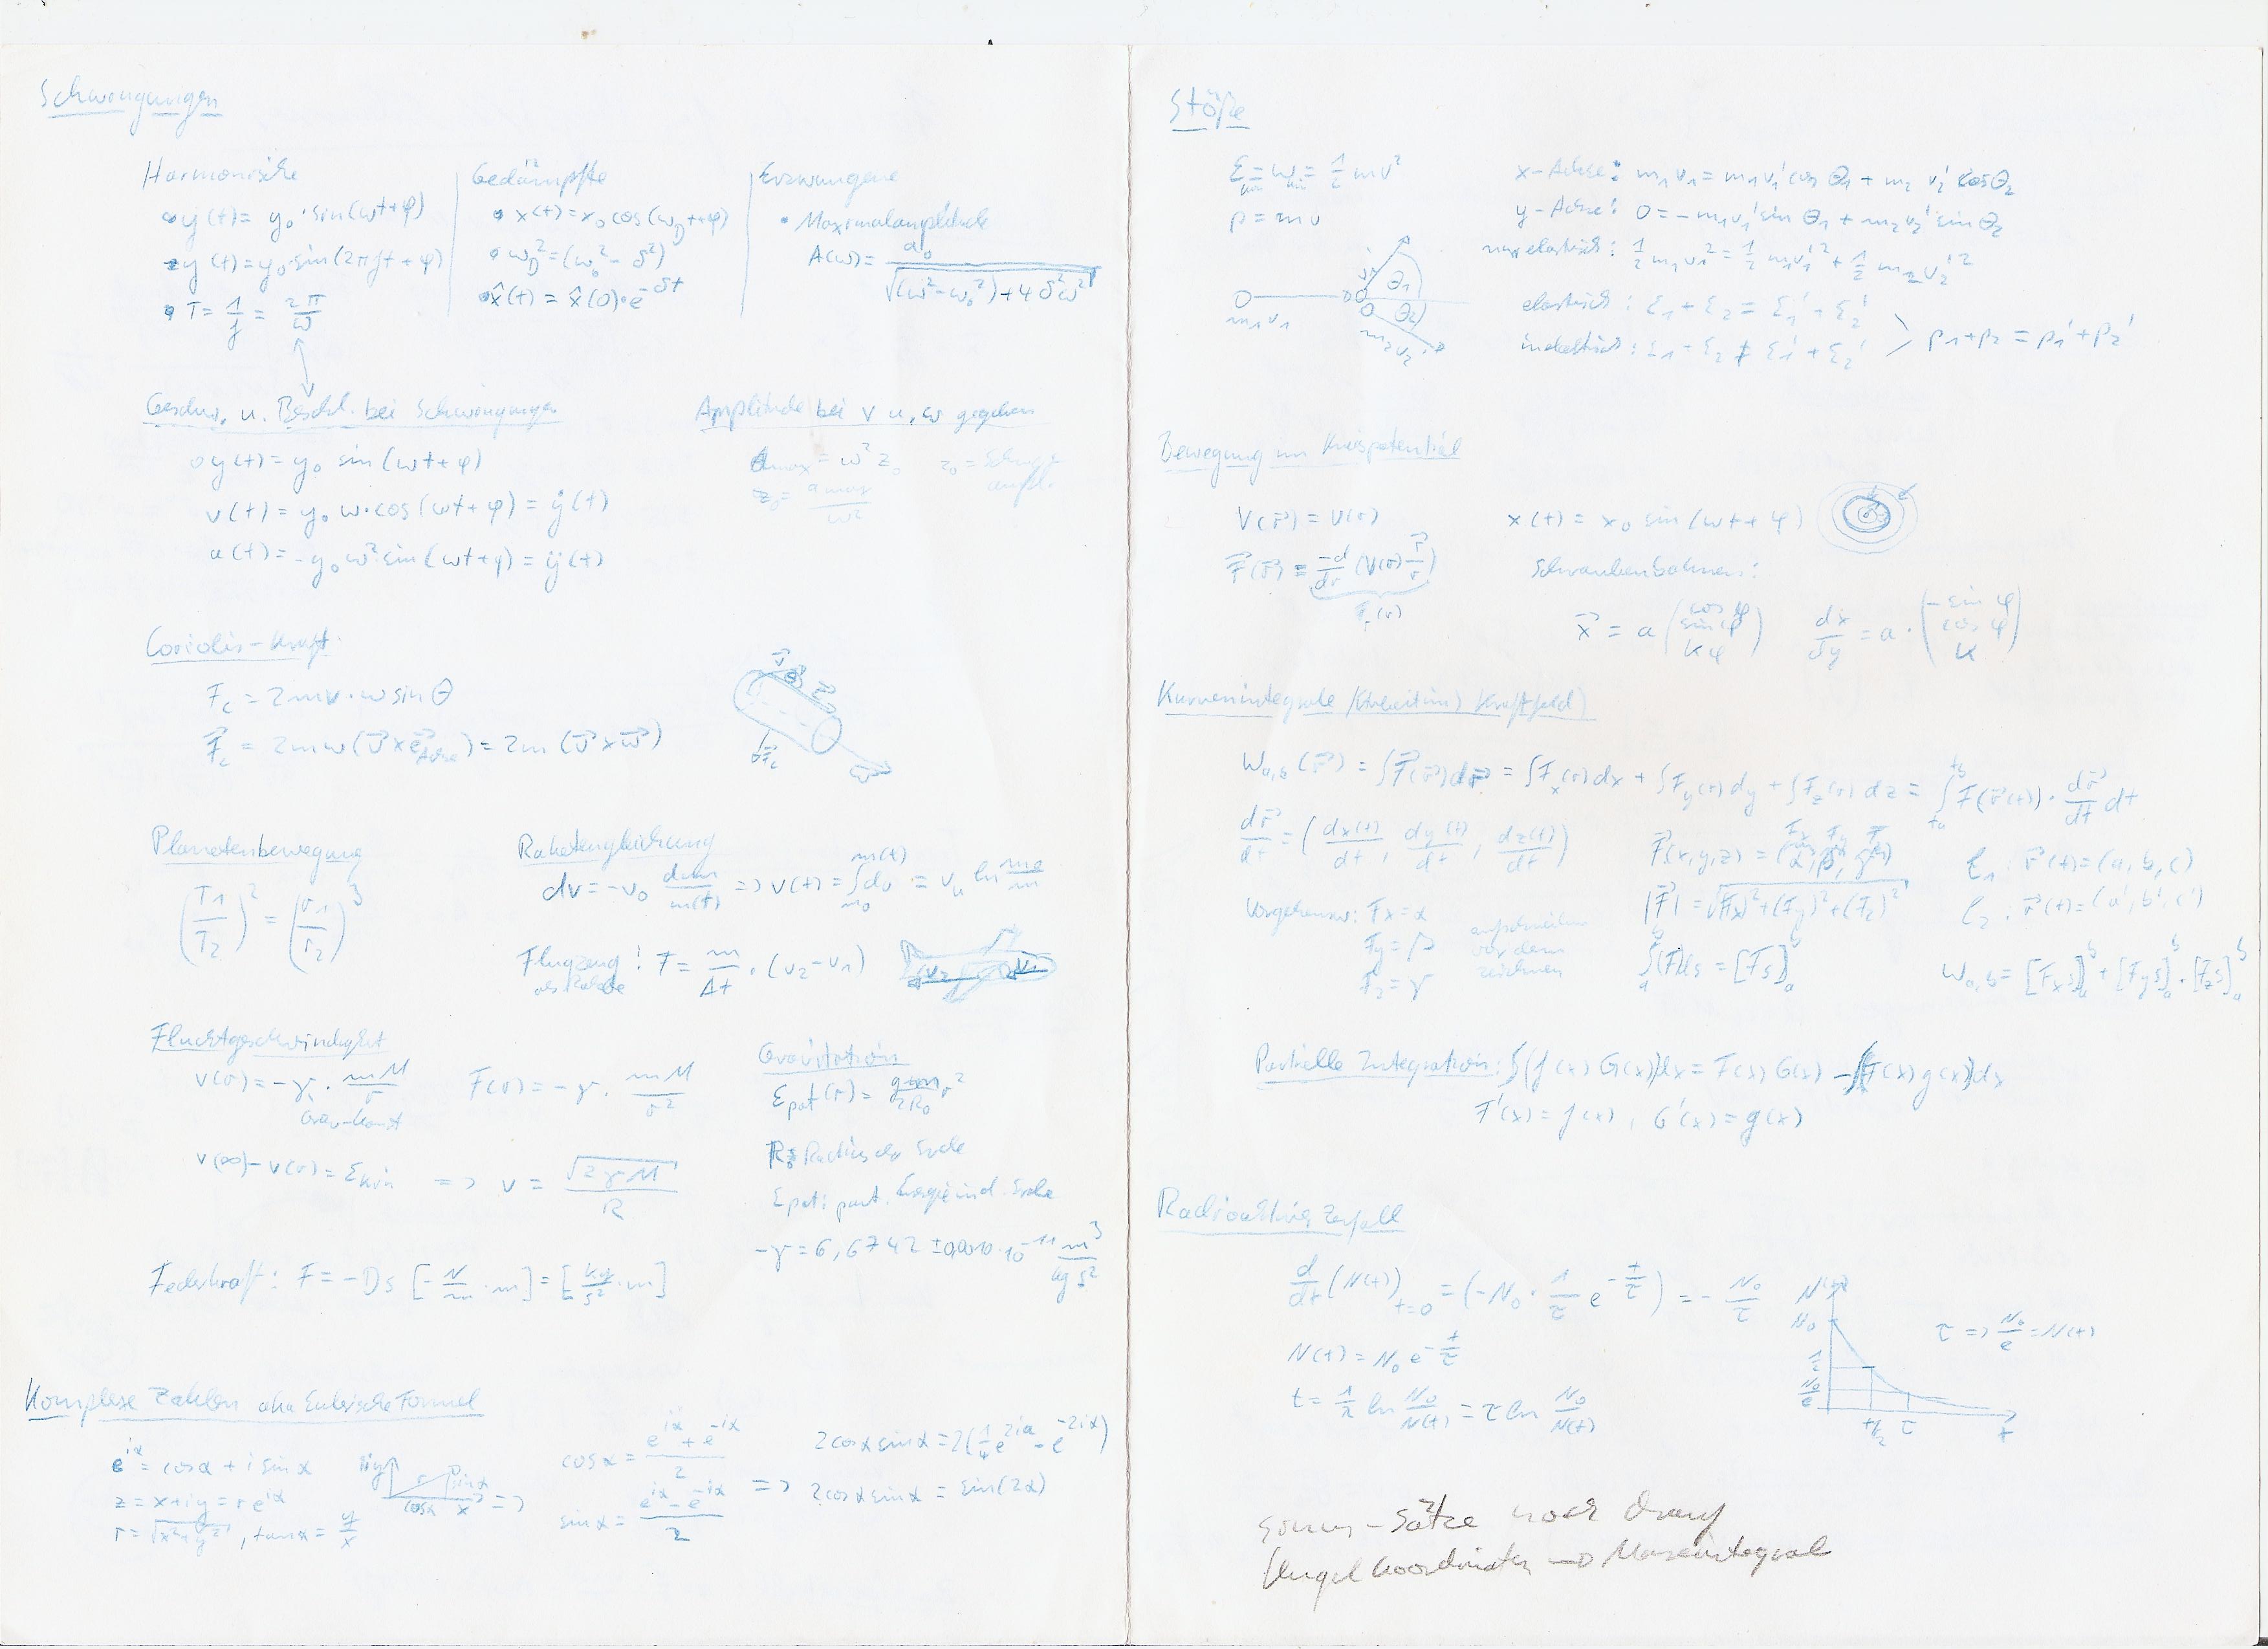 Schwingungen
Harmonische
y(t) = y₀ · sin(ωt+φ)
y(t) = y₀ · sin(2πft + φ)
T = 1/f = 2π/ω
Gedämpfte
x(t) = x₀ cos(ω_D t+φ)
ω_D² = (ω₀² - δ²)
x̂(t) = x̂(0) · e^(-δt)
Erzwungene
Maximalamplitude
A(ω) = a₀/√((ω²-ω₀²)+4δ²ω²)
Geschw. u. Beschl. bei Schwingungen
y(t) = y₀ sin(ωt+φ)
v(t) = y₀ ω·cos(ωt+φ) = ẏ(t)
a(t) = -y₀ω² sin(ωt+φ) = ÿ(t)
Amplitude bei v u. ω gegeben
a_max = ω² z₀
z₀ = a_max/ω²
Coriolis-Kraft:
F_c = 2mv·ω sin θ
F⃗_c = 2mω(v⃗ × e⃗_Achse) = 2m(v⃗ × ω⃗)
v⃗ θ
F_c
Planetenbewegung
(T₁/T₂)² = (r₁/r₂)³
Raketengleichung
=> v(t) = ∫dv = v_u ln m₀/m
Flugzeug: F = m/Δt · (v₂-v₁)
als Rakete
v₂ v₁
Fluchtgeschwindigkeit
V(r) = -γ · mM/r F(r) = -γ · mM/r²
Grav-konst
V(∞) - V(r) = E_kin => v = √(2γM)/R
Gravitation
R₀: Radius der Erde
E pot: pot. Energie ind. Erde
-γ = 6,6742 ± 0,0010 · 10⁻¹¹ m³/kg s²
Federkraft: F = -Ds [-N/m · m] = [kg/s² · m]
Komplexe Zahlen aka Eulersche Formel
e^(iα) = cosα + i sinα
z = x+iy = r e^(iα)
r = √(x²+y²), tanα = y/x
iy r sinα
cosα x =>
cosα = (e^(iα) + e^(-iα))/2
sinα = (e^(iα) - e^(-iα))/2
=>
2cosα sinα = 2(1/4 e^(2iα) - e^(-2iα))
2cosα sinα = sin(2α)
Stöße
E_kin = W_kin = 1/2 mv²
p = mv
m₁v₁
θ₁
θ₂
m₂v₂
x-Achse: m₁v₁ = m₁v₁' cos θ₁ + m₂ v₂' cosθ₂
y-Achse: 0 = -m₁v₁' sin θ₁ + m₂v₂' sin θ₂
nur elastisch: 1/2 m₁v₁² = 1/2 m₁v₁'² + 1/2 m₂v₂'²
elastisch: E₁ + E₂ = E₁' + E₂'
inelastisch: E₁ + E₂ ≠ E₁' + E₂' > p₁+p₂ = p₁'+p₂'
Bewegung im Kreispotential
V(r⃗) = V(r) x(t) = x₀ sin(ωt + φ)
F⃗(r⃗) = -d/dr (V(r) r⃗/r)
F_r(r)
Schraubenbahnen:
x⃗ = a (cos φ, sin φ, kφ) dx/dφ = a · (-sin φ, cos φ, k)
Kurvenintegrale (Arbeit im Kraftfeld)
W_a,b(r⃗) = ∫F⃗(r⃗)dr⃗ = ∫F_x(r)dx + ∫F_y(r)dy + ∫F_z(r)dz = ∫_ta^tb F(r⃗(t)) · dr⃗/dt dt
dr⃗/dt = (dx(t)/dt, dy(t)/dt, dz(t)/dt) F⃗(x,y,z) = (α, β, γ)
Fx Fy Fz
ℓ₁: r⃗(t) = (a, b, c)
ℓ₂: r⃗(t) = (a', b', c')
|F⃗| = √((Fx)²+(Fy)²+(Fz)²)
Vorgehensw: Fx = α
Fy = β
Fz = γ
aufschreiben
vor dem
zeichnen
∫_a^b (F)ds = [Fs]_a^b
W_a,b = [Fxs]_a^b + [Fys]_a^b · [Fzs]_a^b
Partielle Integration: ∫(f(x) G(x))dx = F(x) G(x) - ∫(F(x) g(x))dx
F'(x) = f(x), G'(x) = g(x)
Radioaktiver Zerfall
d/dt (N(t))_t=0 = (-N₀ · 1/τ e^(-t/τ)) = - N₀/τ
N(t) = N₀ e^(-t/τ)
t = 1/λ ln N₀/N(t) = τ ln N₀/N(t)
N(t)
N₀
1/2
N₀/e
t₁/₂ τ t
τ => N₀/e = N(t)
-Sätze noch drauf
Kugelkoordinaten -> Massenintegral